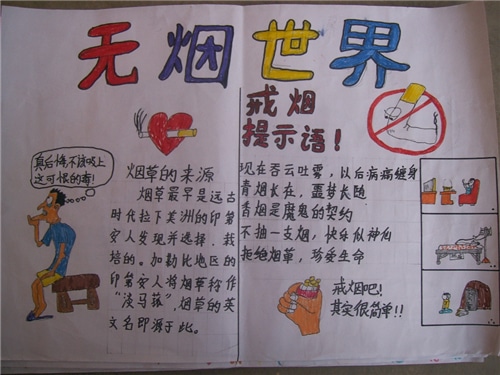 无烟世界
真后悔不该吸上
这可恨的毒!
烟草的来源
烟草最早是远古
时代拉丁美洲的印第
安人发现并选择、栽
培的。加勒比地区的
印第安人将烟草称作
“淡马菰”,烟草的英
文名即源于此。
戒烟
提示语!
现在吞云吐雾,以后病痛缠身
青烟长在,噩梦长随
香烟是魔鬼的契约
不抽一支烟,快乐似神仙
拒绝烟草,珍爱生命
戒烟吧!
其实很简单!!